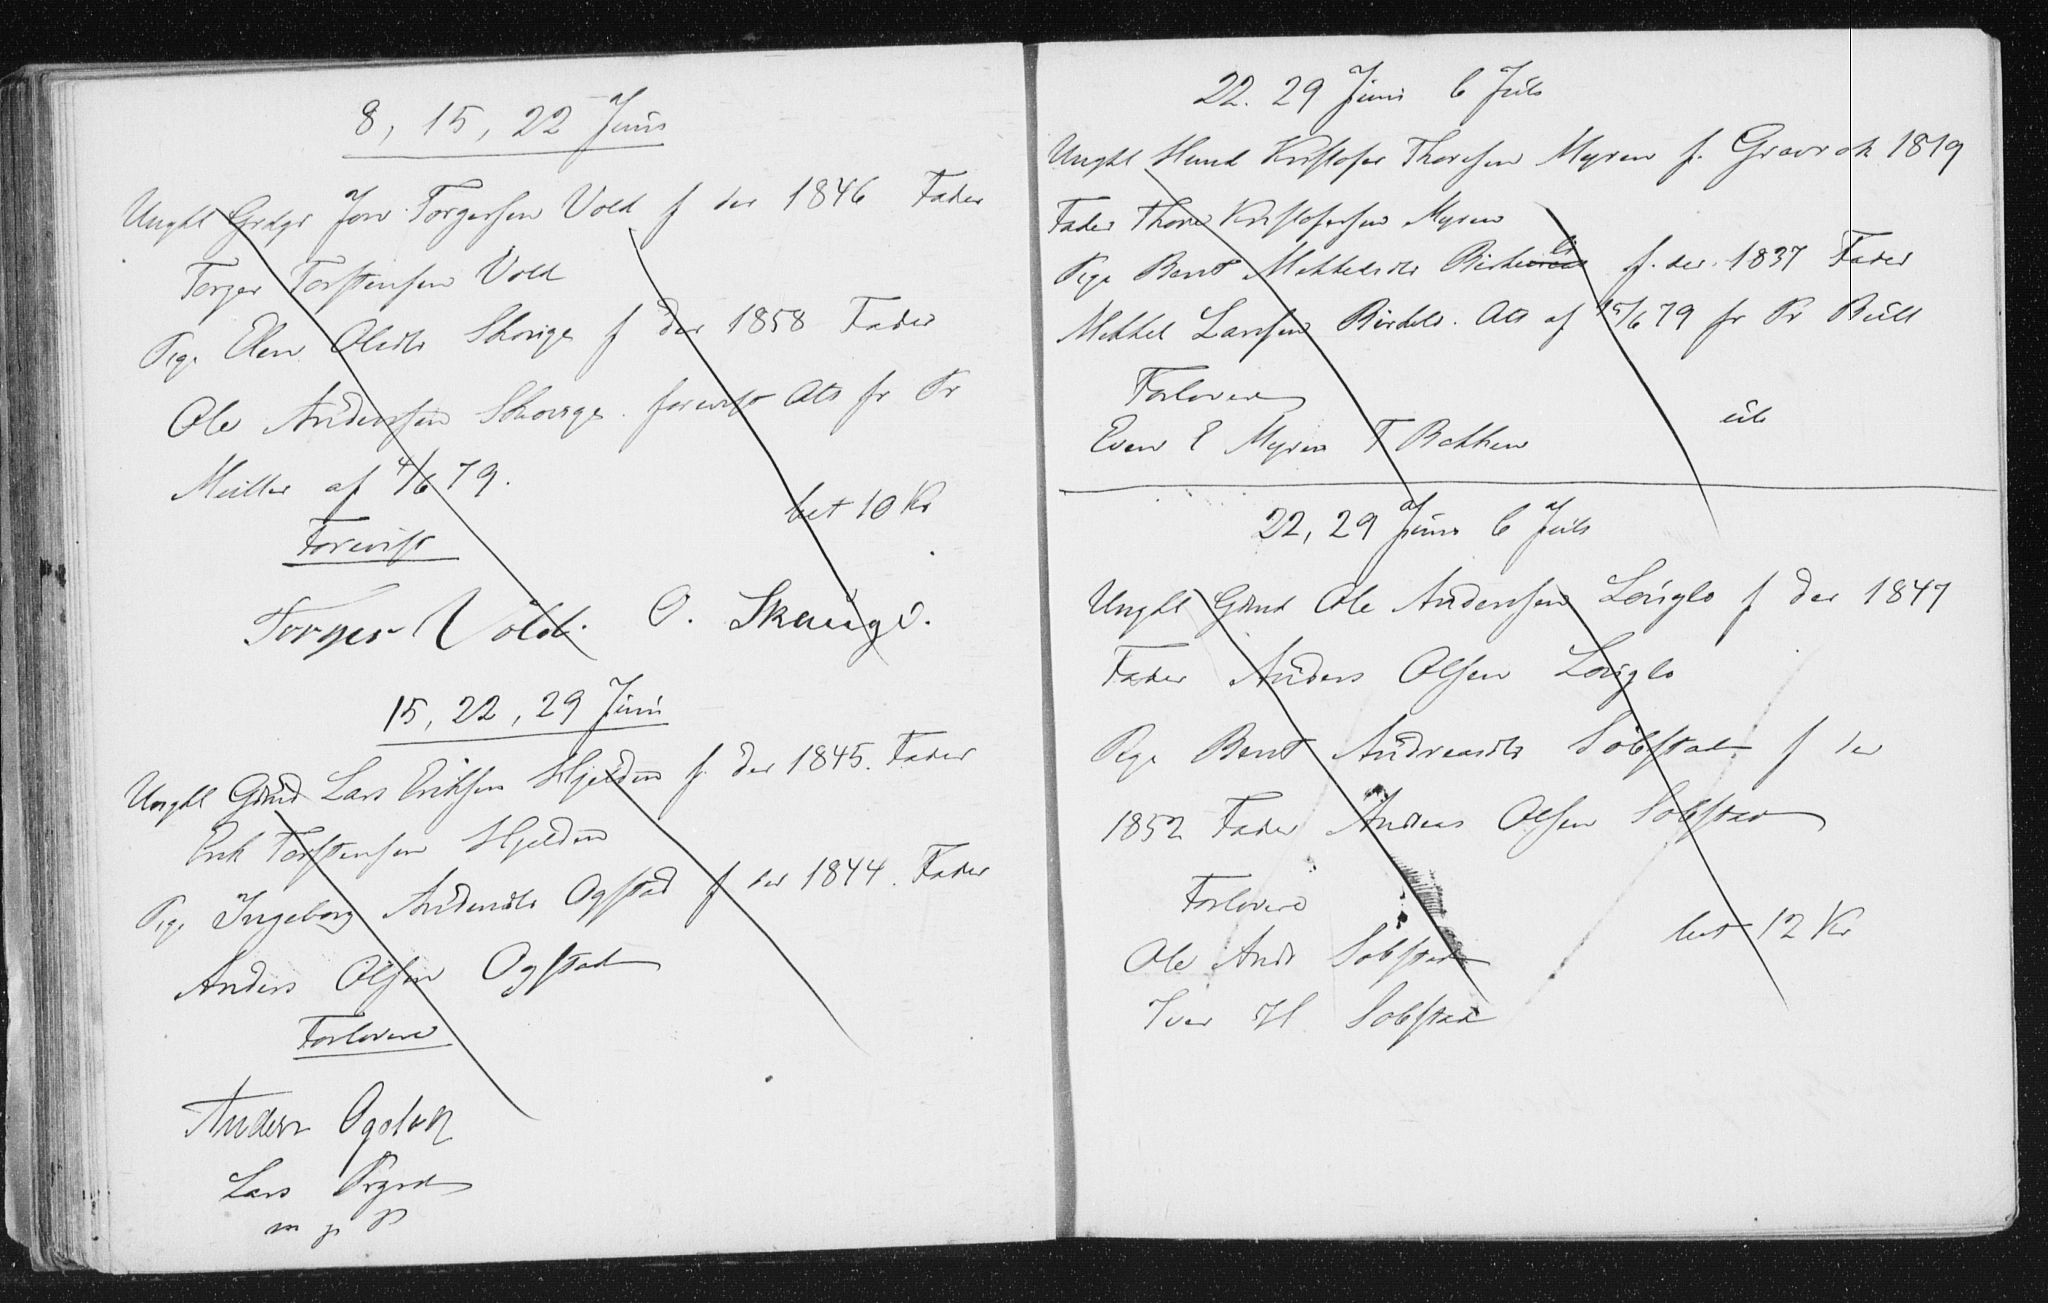 8, 15, 22 Juni
Ungkl Grdgr Jon Torgersen Vold f der 1846 Fader
Torger Torstensen Vold
Pige Elen Olsdtr Skouge f der 1858 Fader
Ole Andersen Skouge. forevist Att fr Pr
Müller af 4/6 79.
bet 10 Kr
Forevist
Torger Vold. O. Skauge.
15, 22, 29 Juni
Ungkl Gdmd Lars Eriksen Hjeldin f. der 1845. Fader
Erik Torstensen Hjeldin
Pige Ingeborg Andersdtr Ogstad f der 1844. Fader
Anders Olsen Ogstad
Forlovere
Anders Ogstad
Lars
m p P
22. 29 Juni 6 Juli
Ungkl Hmd Kristofer Thoresen Myren f. Gravrok 1819
Fader Thore Kristofersen Myren
Pige Berit Mekkelsdtr f. der. 1837 Fader
Mekkel Larsen Att af 15/6 79 fr Pr Bull
Forlovere
ub
Even E Myren T Bakken
22, 29 Juni 6 Juli
Ungkl Gdmd Ole Andersen Løriglo f der 1847
Fader Anders Olsen Løriglo
Pige Berit Andreasdtr Sobstad f der
1852 Fader Andreas Olsen Sobstad
Forlovere
bet 12 Kr
Ole Andr Sobstad
Iver H Sobstad